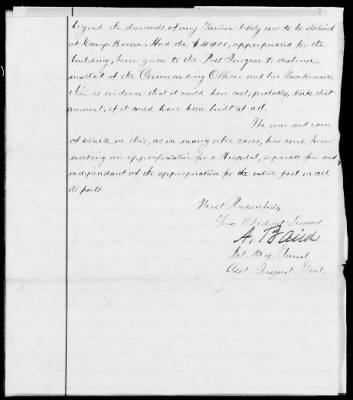 beyond the demands of any Garrison likely ever to be stationed
at Camp Brown. Had the $4000, appropriated for the
building, been given to the Post Surgeon to disburse,
instead of the Commanding Officer and his Quartermaster,
there is evidence that it would have cost, probably, twice that
amount, if it could have been built at all.
The one and one
of trouble in this, as in many other cases, has come from
making an appropriation for a Hospital, separate from and
independent of the appropriation for the entire post in all
its parts.
Most Respectfully
Your Obedient Servant
A. Baird
Bvt. Maj. General
Asst. Inspect. Genl.